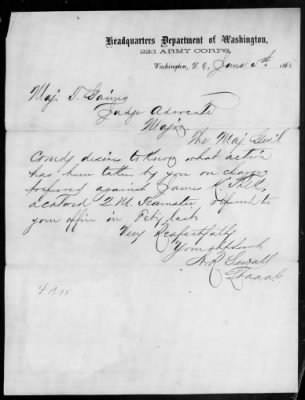 Headquarters Department of Washington,
22d ARMY CORPS,
Washington, D. C., June 5th 1865
Maj. T. Gaines
Judge Advocate
Major
The Maj. Gen'l
Comdg desires to know what action
has been taken by you on charges
preferred against James
a colored Teamster, referred to
your office in Feby last
Very Respectfully
Your